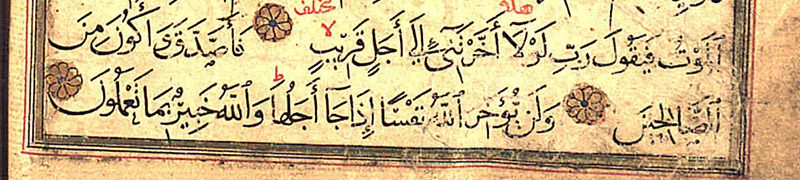 مختلف
ٱلْمَوْتُ فَيَقُولَ رَبِّ لَوْلَآ أَخَّرْتَنِىٓ إِلَىٓ أَجَلٍ قَرِيبٍ لا فَأَصَّدَّقَ وَ أَكُونَ مِنَ
ٱلصَّالِحِينَ وَلَنْ يُؤَخِّرَ ٱللّٰهُ نَفْسًا إِذَا جَآ أَجَلُهَا ط وَٱللّٰهُ خَبِيرٌ بِمَا تَعْمَلُونَ